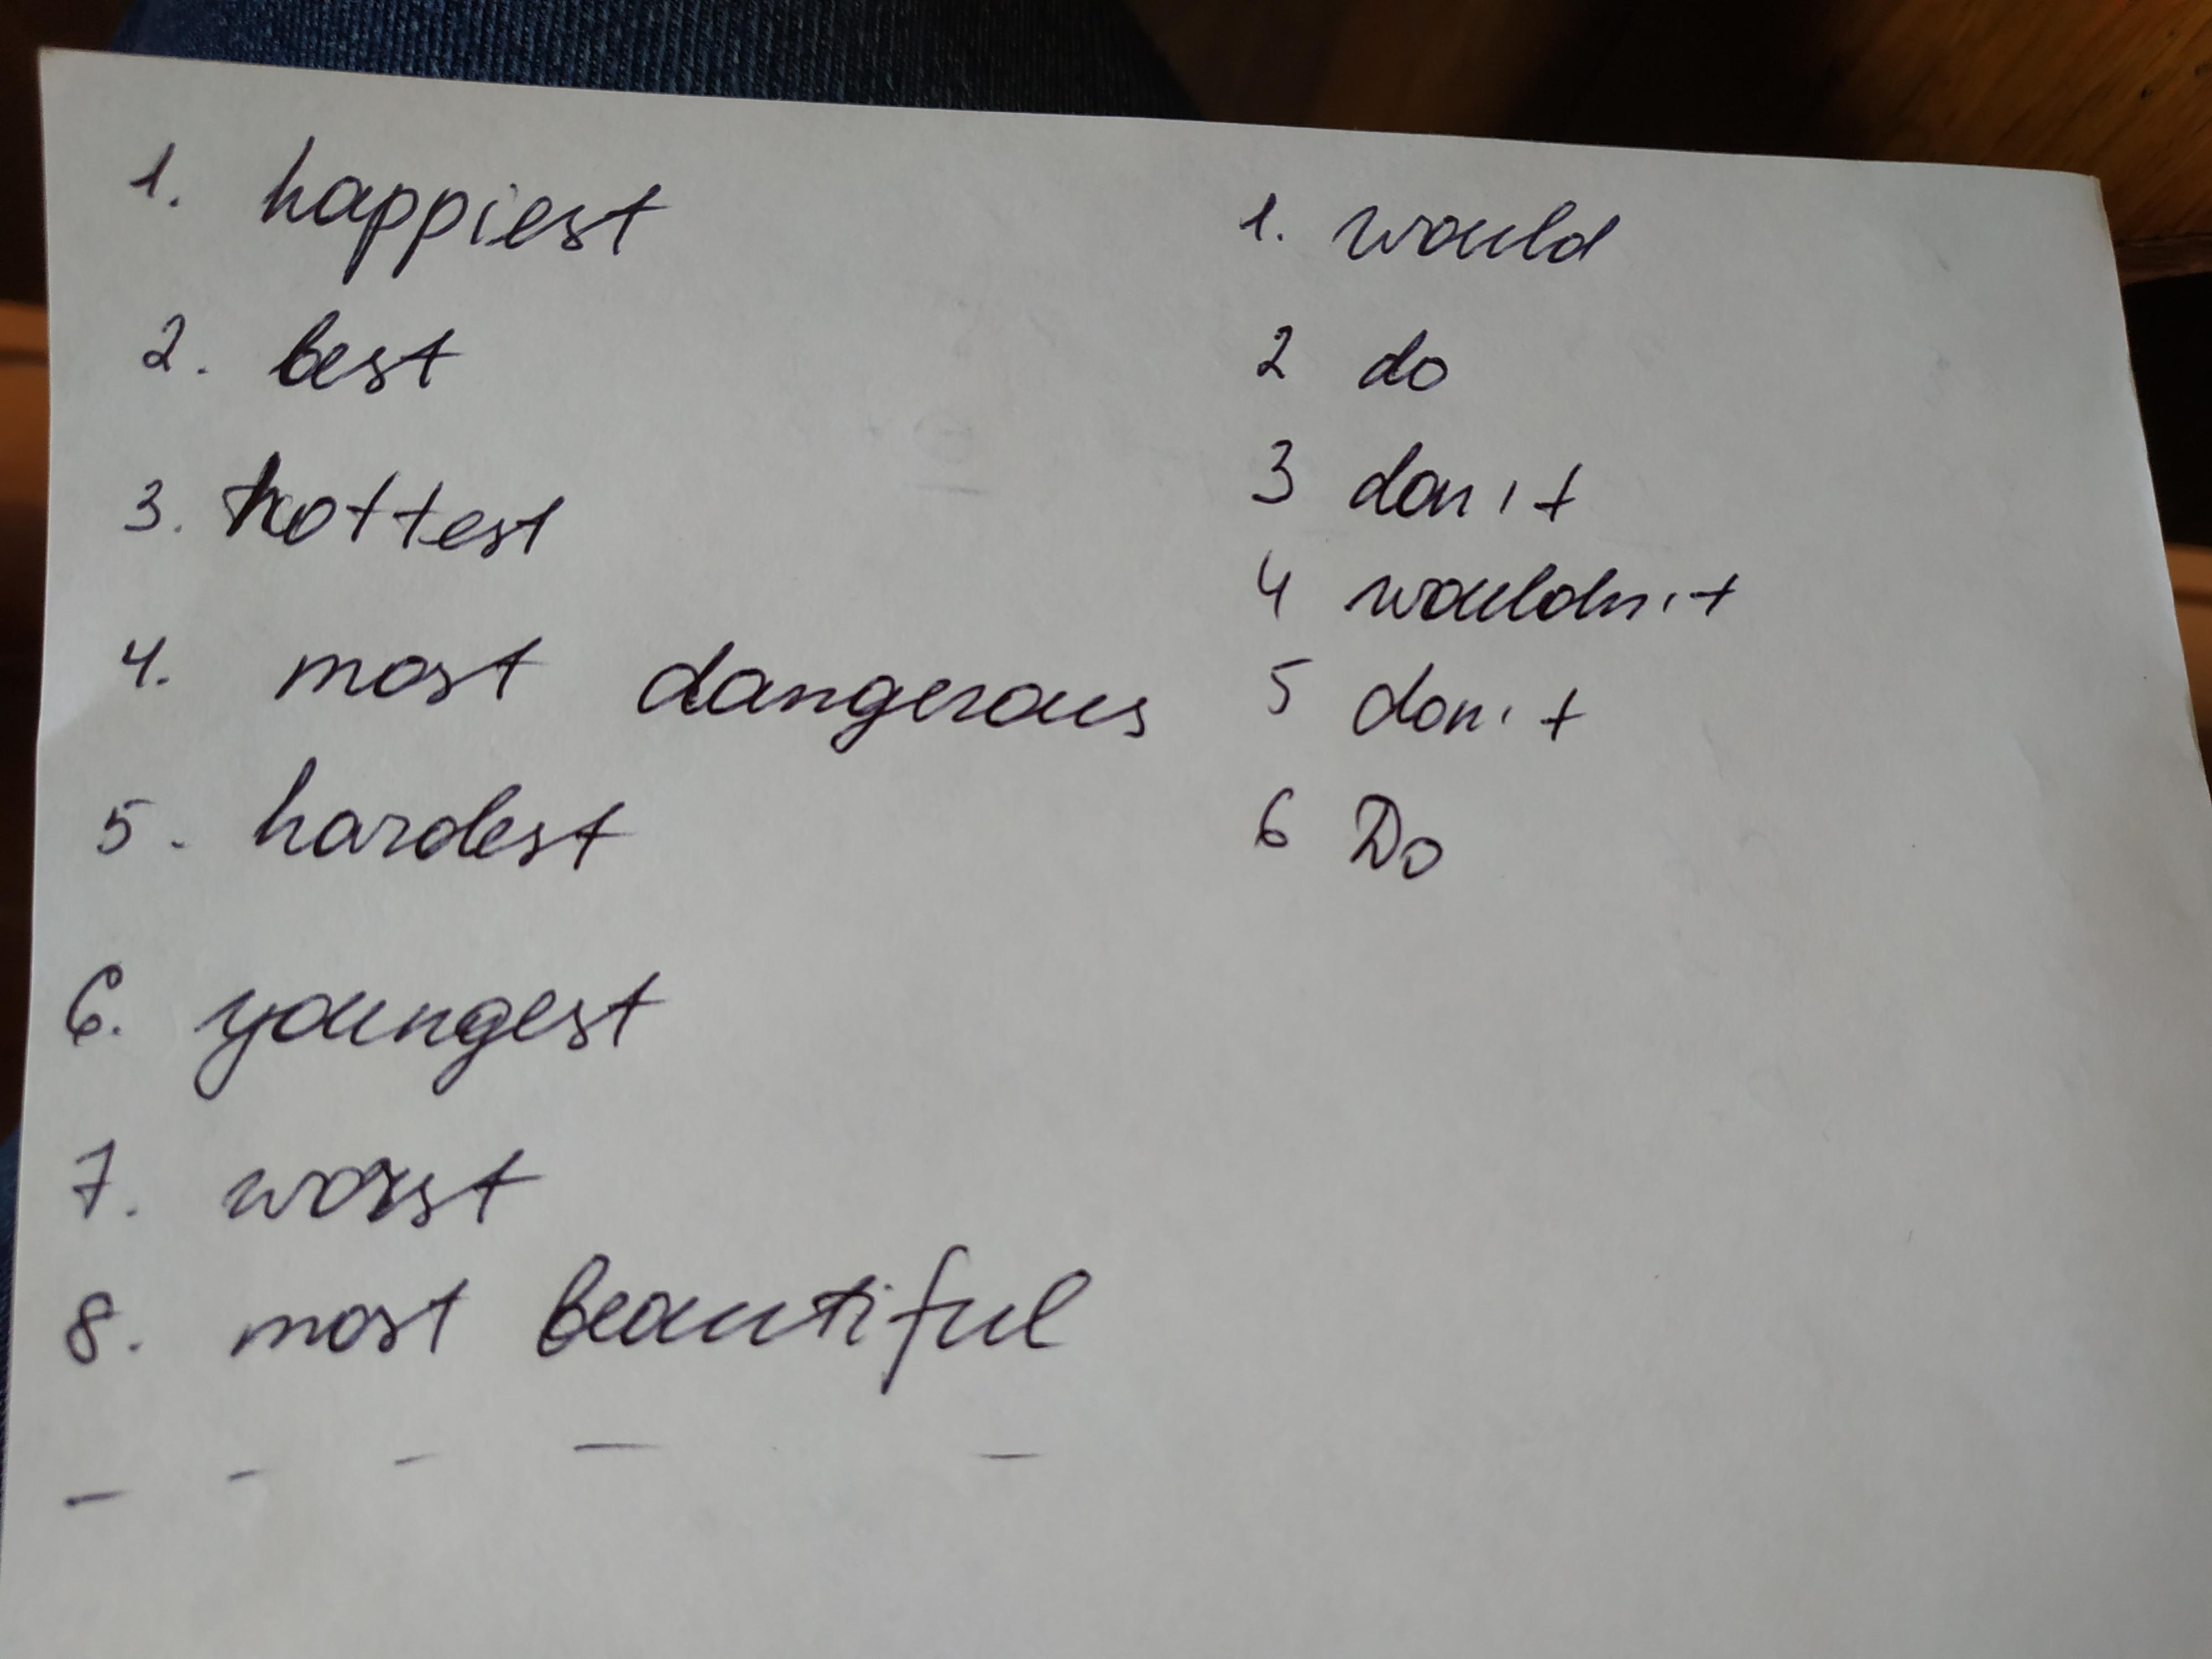 1. happiest
2. best
3. hottest
4. most dangerous
5. hardest
6. youngest
7. worst
8. most beautiful
1. would
2 do
3 don't
4 wouldn't
5 don't
6 Do